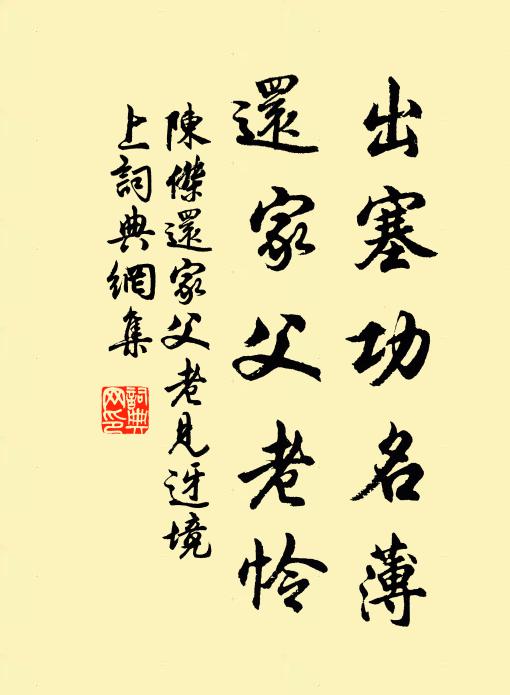 出塞功名薄
還家父老怜
陳傑還家父老見迓境
上詞典網集
詞典
网印